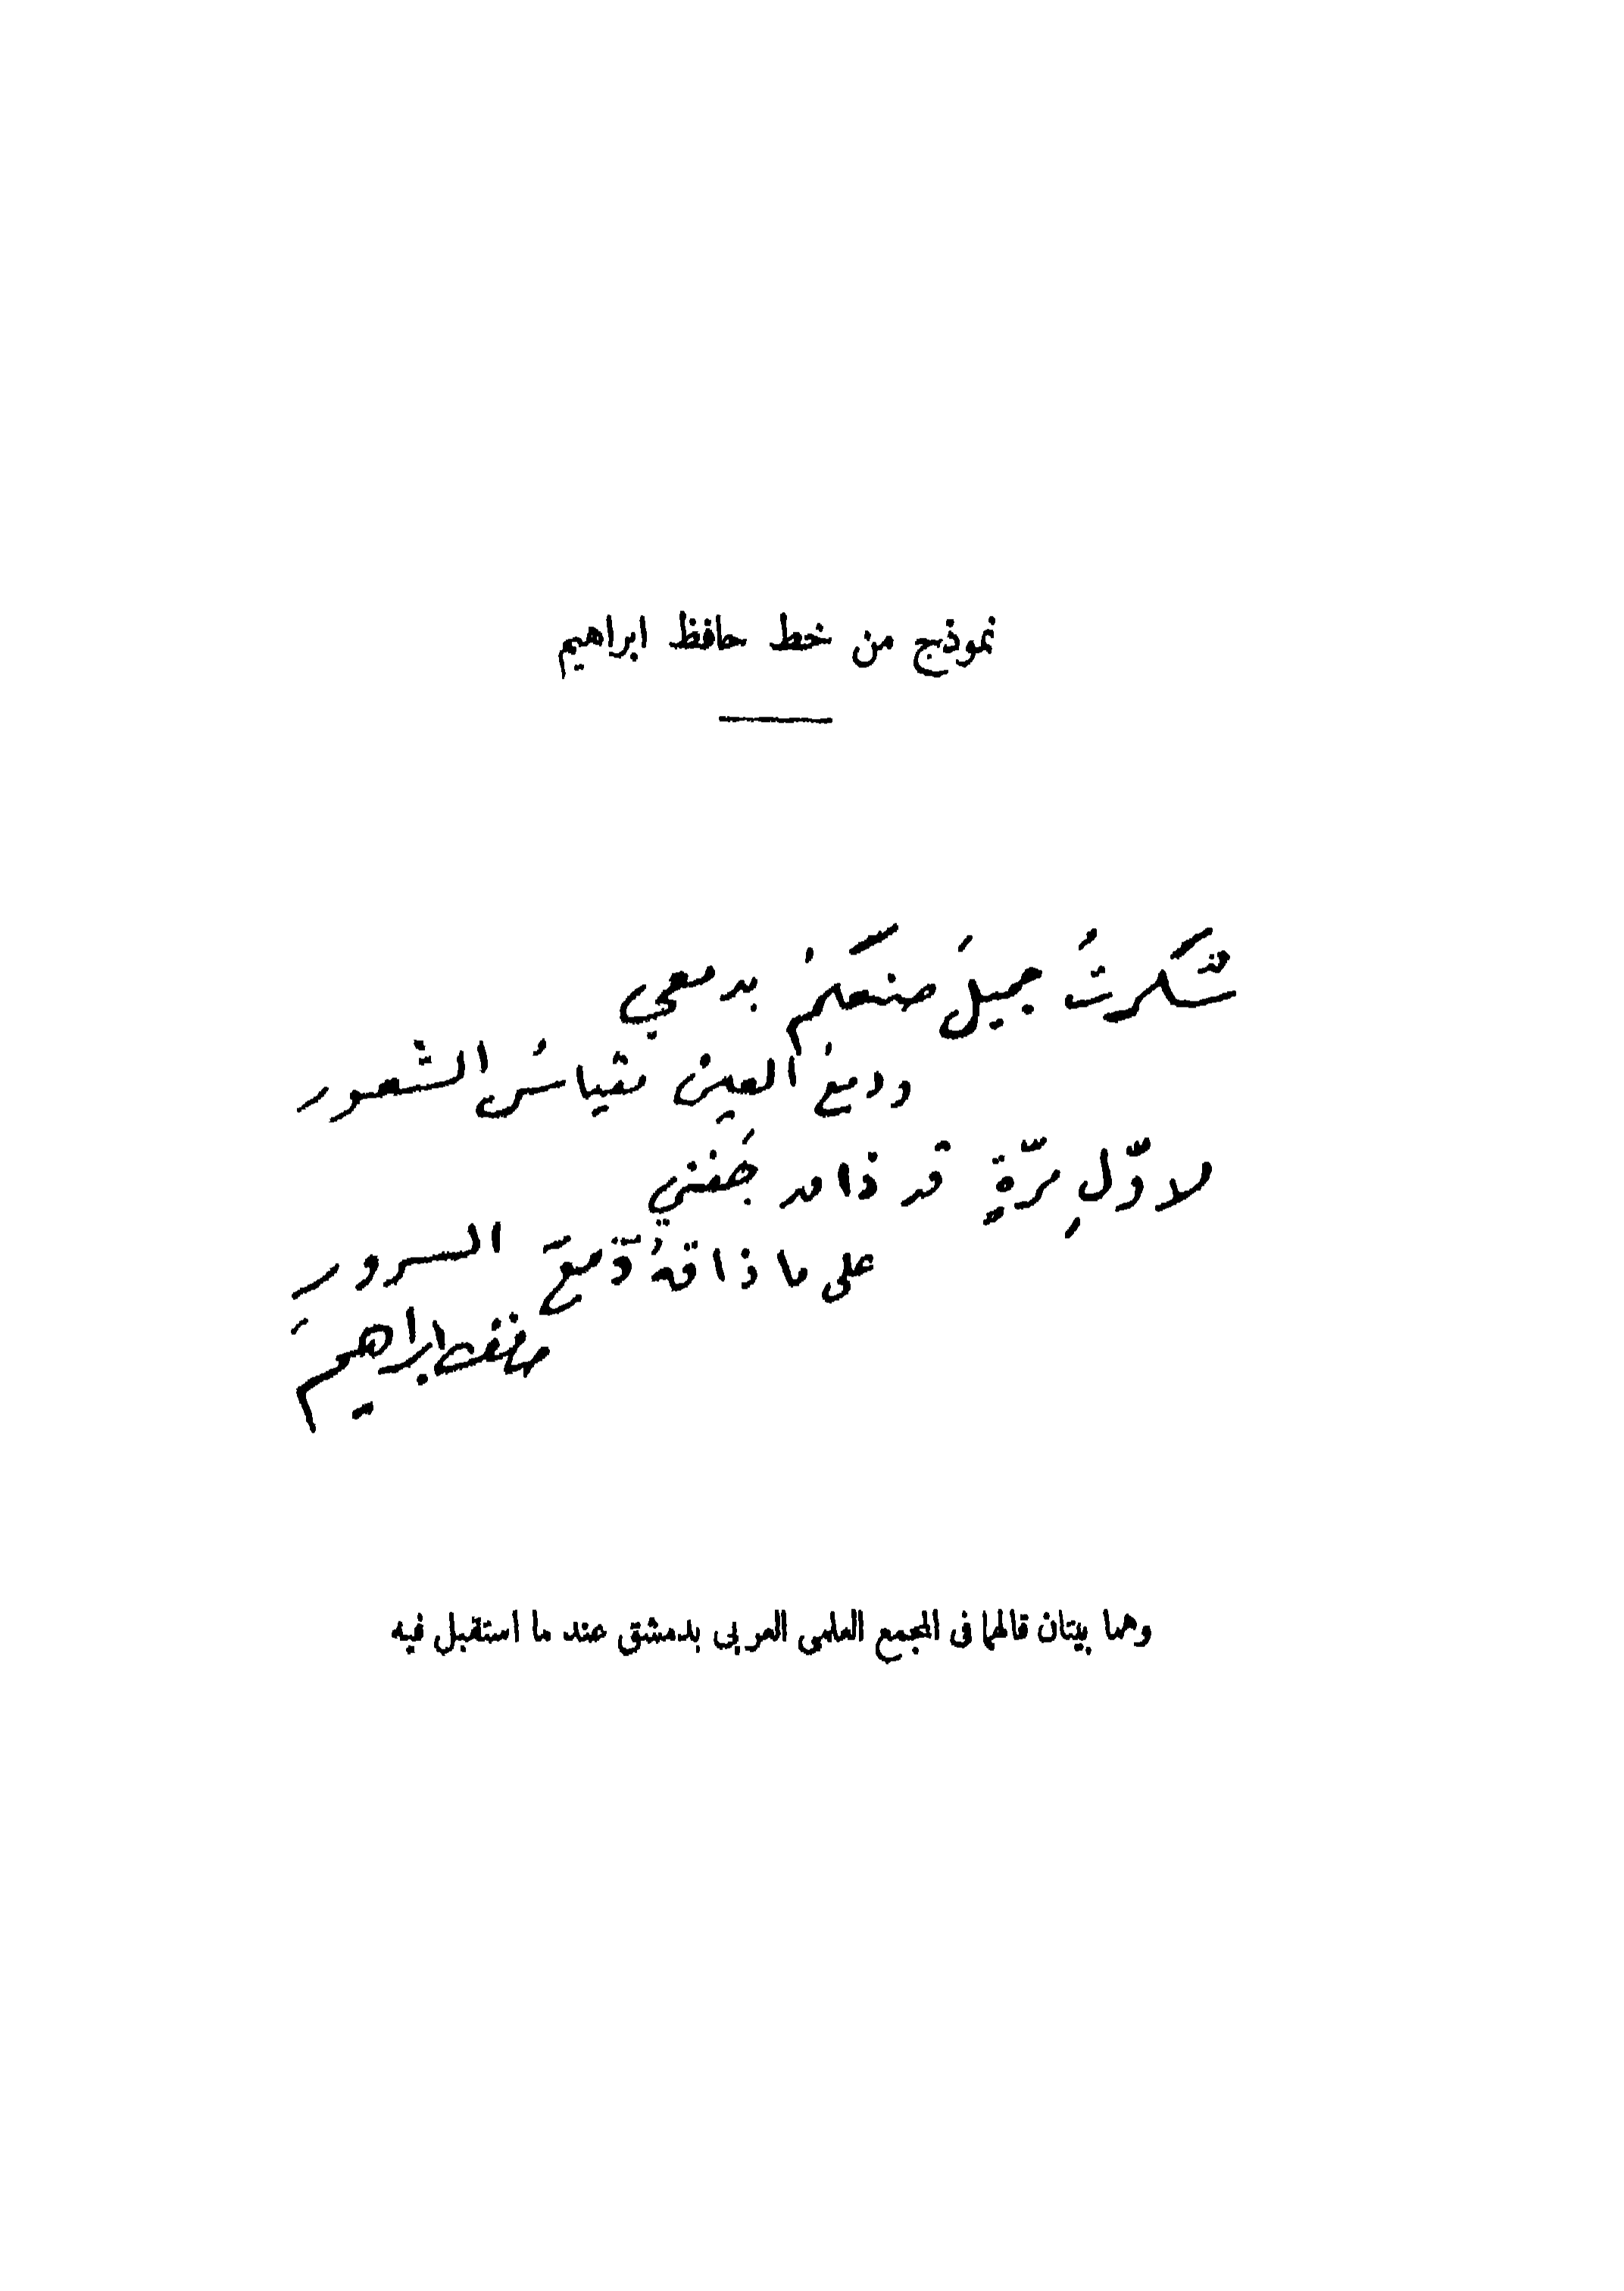 نموذج من خط حافظ ابراهيم
شكرتُ جميلَ صنعكمُ بدمعي
ودمعُ العين مقياسُ الشعور
لاوّلِ مرّةٍ قد ذاق جَفني
على ما ذاقهُ دَمعَ السرورِ
حافظ ابراهيم
وهما بيتان قالهما فى المجمع العلمى العربى بدمشق عند ما استقبل فيه